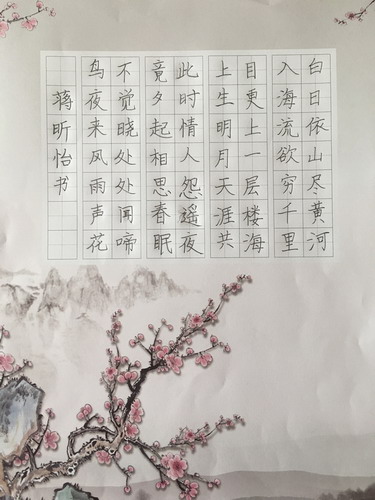 白日依山尽黄河
入海流欲穷千里
目更上一层楼海
上生明月天涯共
此时情人怨遥夜
竟夕起相思春眠
不觉晓处处闻啼
鸟夜来风雨声花
蒋昕怡书